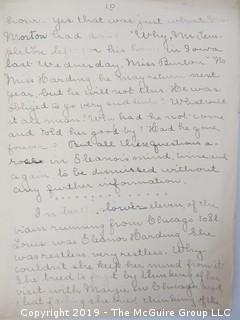 10
hour. Yes that was just what Mr.
Morton had said. "Why, Mr. Tem-
pleton left for his home in Iowa
last Wednesday, Miss Burton." No
Miss Harding, he may return next
year, but he will not this. He was
obliged to go very suddenly." What did
it all mean? Why had he not come
and told her good by? Had he gone
forever? But all these questions a-
rose in Eleanor's mind time and
again, to be dismissed without
any further information.
In lower eleven of the
trains running from Chicago to St.
Louis was Eleanor Harding. She
was restless very restless. Why
couldn't she keep her mind from it?
She tried to thinking of her
visit with in Chicago and
that she thinking of the
Copyright 2019 - The Photography